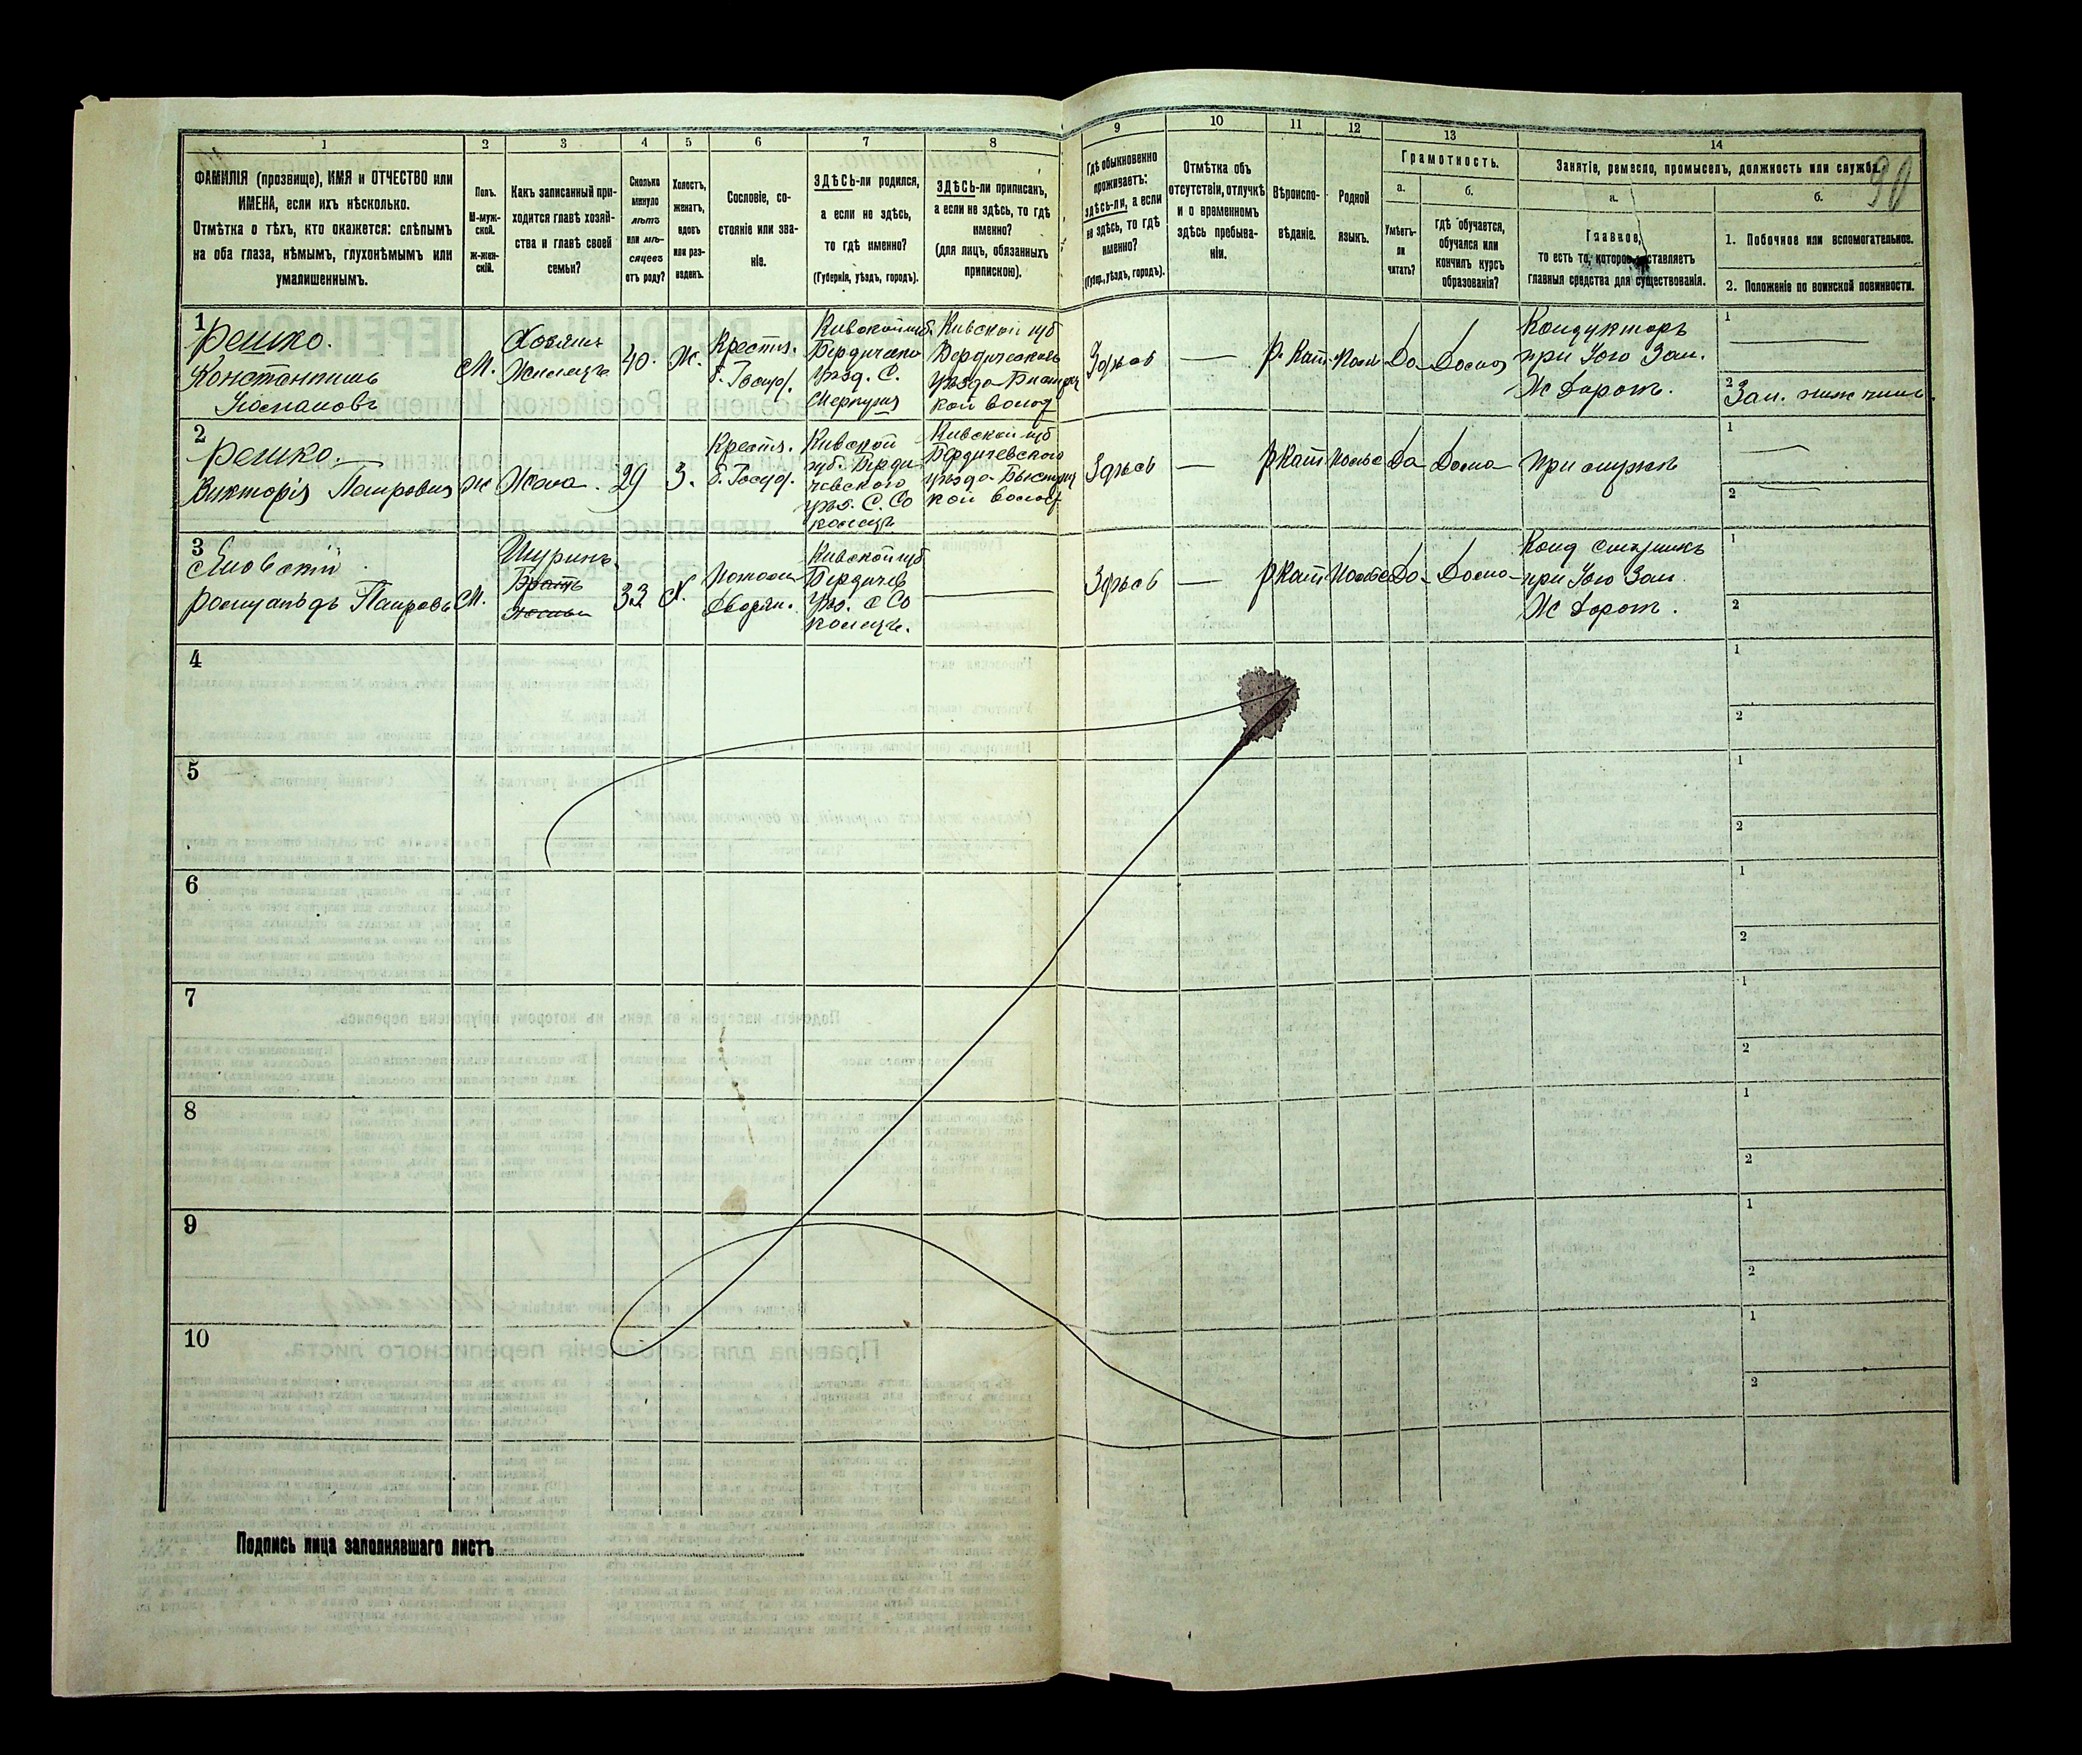 1 2 3 4 5 6 7 8 9 10 11 12 13 14
ФАМИЛІЯ (прозвище), ИМЯ и ОТЧЕСТВО или
ИМЕНА, если ихъ нѣсколько.
Отмѣтка о тѣхъ, кто окажется: слѣпымъ
на оба глаза, нѣмымъ, глухонѣмымъ или
умалишеннымъ.
Полъ.
М-муж-
ской.
Ж-жен-
скій.
Какъ записанный при-
ходится главѣ хозяй-
ства и главѣ своей
семьи?
Сколько
минуло
лѣтъ
или мѣ-
сяцевъ
отъ роду?
Холостъ,
женатъ,
вдовъ
или раз-
веденъ.
Сословіе, со-
стояніе или зва-
ніе.
ЗДѢСЬ-ли родился,
а если не здѣсь,
то гдѣ именно?
(Губернія, уѣздъ, городъ).
ЗДѢСЬ-ли приписанъ,
а если не здѣсь, то гдѣ
именно?
(для лицъ, обязанныхъ
припискою).
Гдѣ обыкновенно
проживаетъ:
здѣсь-ли, а если
не здѣсь, то гдѣ
именно?
(Губер., уѣздъ, городъ).
Отмѣтка объ
отсутствіи, отлучкѣ
и о временномъ
здѣсь пребыва-
ніи.
Вѣроиспо-
вѣданіе.
Родной
языкъ.
Грамотность.
а.
Умѣетъ-
ли
читать?
б.
Гдѣ обучается,
обучался или
кончилъ курсъ
образованія?
Занятіе, ремесло, промыселъ, должность или служба.
90
а.
Главное,
то есть то, которое доставляетъ
главныя средства для существованія.
б.
1. Побочное или вспомогательное.
2. Положеніе по воинской повинности.
1
Решко.
Константинъ
М.
Хозяинъ
40.
Ж.
Крестя.
б. Госуд.
Кивской губ.
уѣзд. С.
Кивской губ
Здѣсь
р. Кат.
Да
Дома
Кондукторъ
при Юго Зап.
Ж Дорож.
1
2
Зап. ниж чинъ
2
Решко.
Викторія Петровна
Ж
Жена.
29
З.
Крестя.
б. Госуд.
Кивской
губ. Берди
чевского
уѣз. С. Со
колецъ
Кивской губ
Бердичевского
Здѣсь
р Кат
Польс
Да
Дома
при мужѣ
1
2
3
Яновскій
Ромуальдъ Петровъ
М.
Шуринъ.
Братъ
жены
33
Х.
Потом
Дворян.
Кивской губ
Бердичев
уѣз. с Со
колецъ.
Здѣсь
р Кат
Польс
Да
Дома
Конд старшимъ
при Юго Зап.
Ж Дорож.
1
2
4
1
2
5
1
2
6
1
2
7
1
2
8
1
2
9
1
2
10
1
2
Подпись лица заполнявшаго листъ